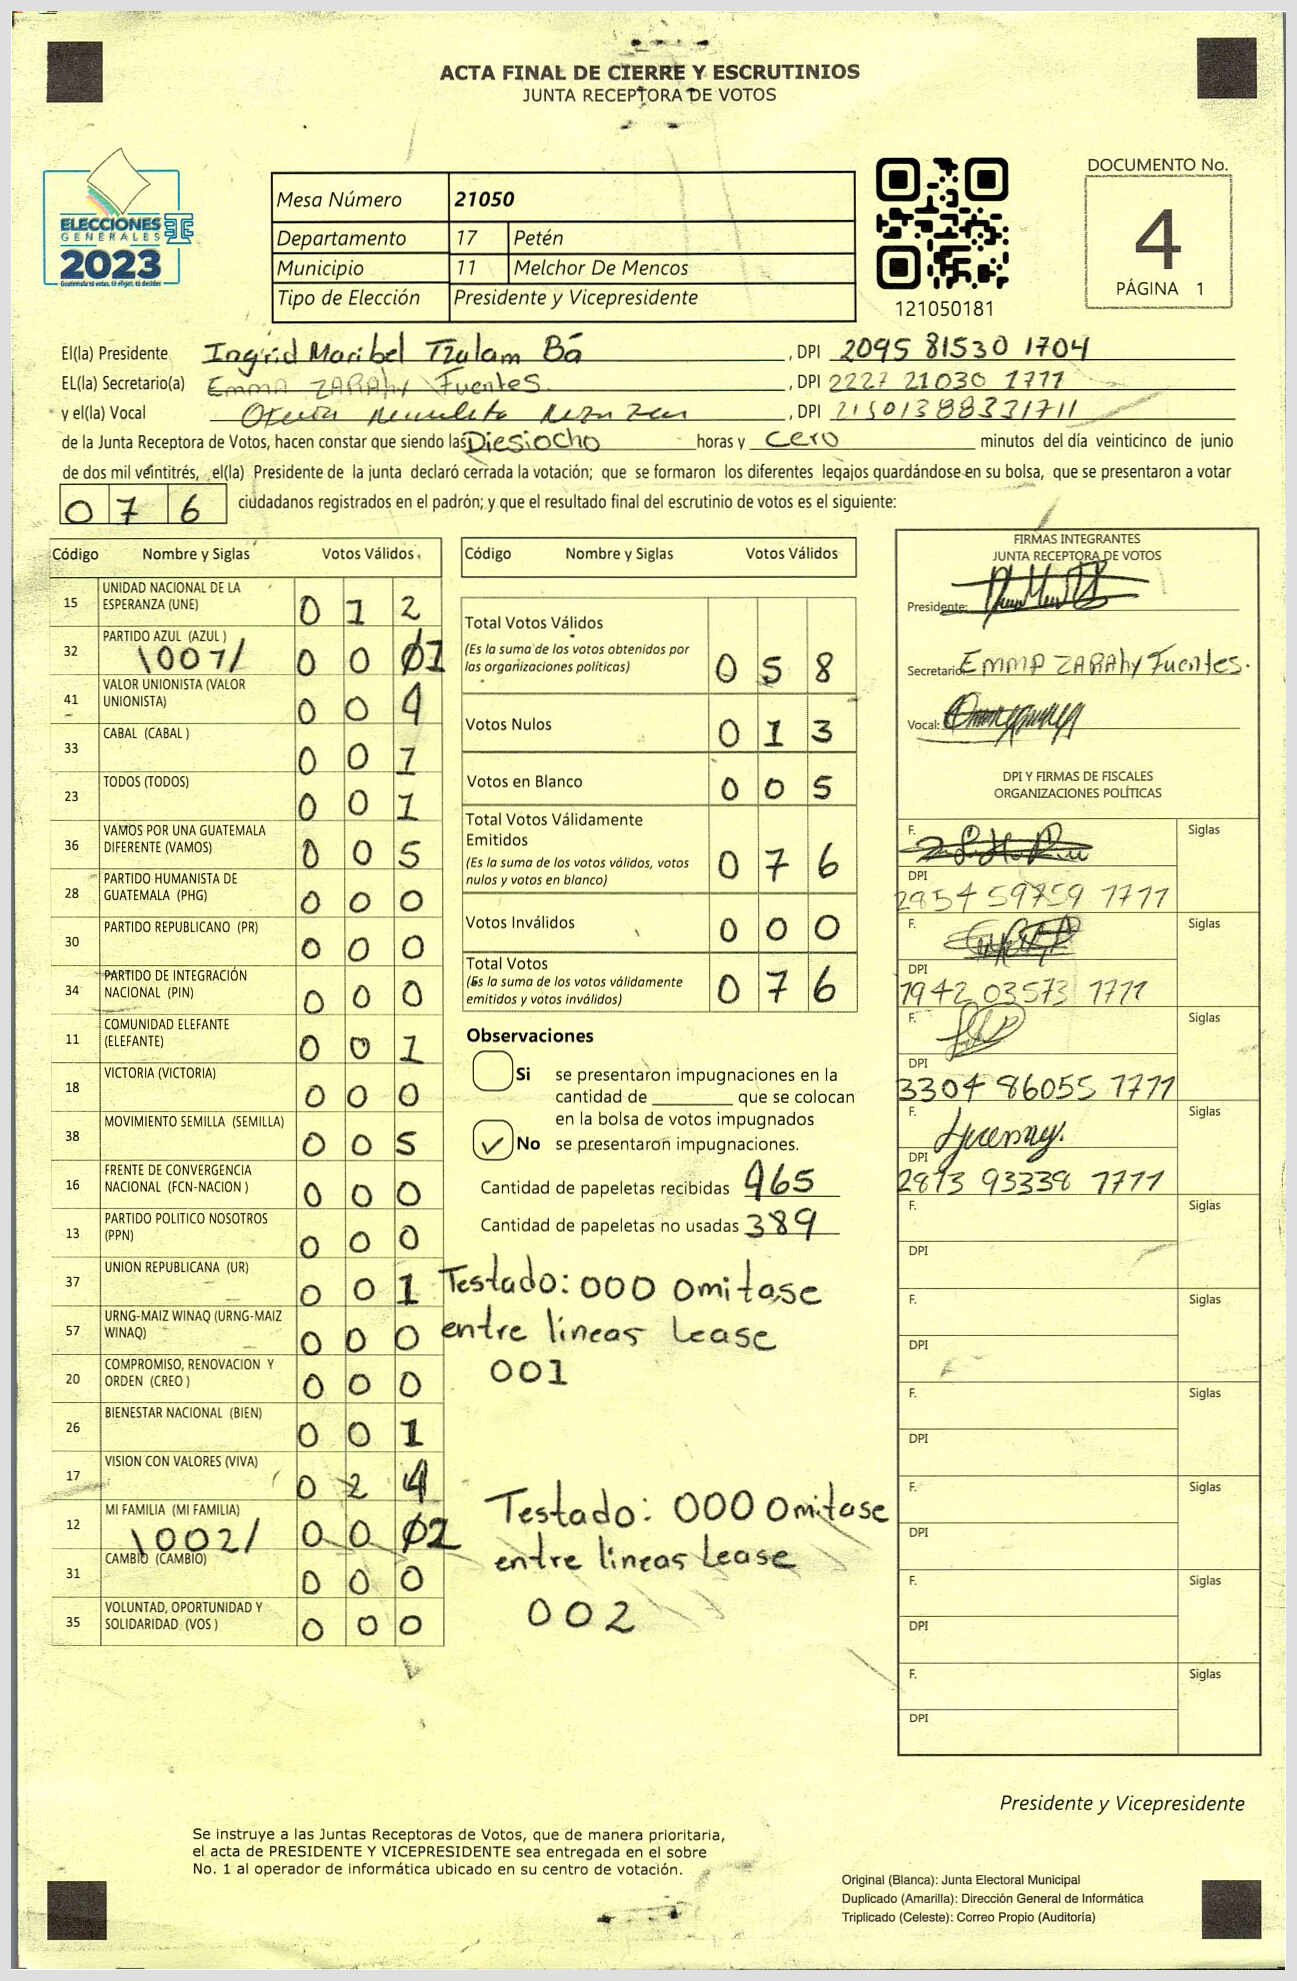 ACTA FINAL DE CIERRE Y ESCRUTINIOS
JUNTA RECEPTORA DE VOTOS
ELECCIONES
GENERALES
2023
Mesa Número 21050
Departamento 17 Petén
Municipio 11 Melchor De Mencos
Tipo de Elección Presidente y Vicepresidente
121050181
DOCUMENTO No.
4
PÁGINA 1
El(la) Presidente Ingrid Maribel Tzulam Bá , DPI 2095 81530 1704
EL(la) Secretario(a) Emma ZARAhy Fuentes. , DPI 2227 21030 1711
y el(la) Vocal , DPI 21501388331711
de la Junta Receptora de Votos, hacen constar que siendo las Diesiocho horas y cero minutos del día veinticinco de junio
de dos mil veintitrés, el(la) Presidente de la junta declaró cerrada la votación; que se formaron los diferentes legajos guardándose en su bolsa, que se presentaron a votar
0 7 6 ciudadanos registrados en el padrón; y que el resultado final del escrutinio de votos es el siguiente:
Código Nombre y Siglas Votos Válidos
15 UNIDAD NACIONAL DE LA ESPERANZA (UNE) 0 1 2
32 PARTIDO AZUL (AZUL ) \001/ 0 0 01
41 VALOR UNIONISTA (VALOR UNIONISTA) 0 0 4
33 CABAL (CABAL ) 0 0 1
23 TODOS (TODOS) 0 0 1
36 VAMOS POR UNA GUATEMALA DIFERENTE (VAMOS) 0 0 5
28 PARTIDO HUMANISTA DE GUATEMALA (PHG) 0 0 0
30 PARTIDO REPUBLICANO (PR) 0 0 0
34 PARTIDO DE INTEGRACIÓN NACIONAL (PIN) 0 0 0
11 COMUNIDAD ELEFANTE (ELEFANTE) 0 0 1
18 VICTORIA (VICTORIA) 0 0 0
38 MOVIMIENTO SEMILLA (SEMILLA) 0 0 5
16 FRENTE DE CONVERGENCIA NACIONAL (FCN-NACION ) 0 0 0
13 PARTIDO POLITICO NOSOTROS (PPN) 0 0 0
37 UNION REPUBLICANA (UR) 0 0 1
57 URNG-MAIZ WINAQ (URNG-MAIZ WINAQ) 0 0 0
20 COMPROMISO, RENOVACION Y ORDEN (CREO ) 0 0 0
26 BIENESTAR NACIONAL (BIEN) 0 0 1
17 VISION CON VALORES (VIVA) 0 2 4
12 MI FAMILIA (MI FAMILIA) \002/ 0 0 02
31 CAMBIO (CAMBIO) 0 0 0
35 VOLUNTAD, OPORTUNIDAD Y SOLIDARIDAD (VOS ) 0 0 0
Código Nombre y Siglas Votos Válidos
Total Votos Válidos
(Es la suma de los votos obtenidos por las organizaciones políticas) 0 5 8
Votos Nulos 0 1 3
Votos en Blanco 0 0 5
Total Votos Válidamente Emitidos
(Es la suma de los votos válidos, votos nulos y votos en blanco) 0 7 6
Votos Inválidos 0 0 0
Total Votos
(Es la suma de los votos válidamente emitidos y votos inválidos) 0 7 6
Observaciones
Si se presentaron impugnaciones en la
cantidad de ________ que se colocan
en la bolsa de votos impugnados
No se presentaron impugnaciones.
Cantidad de papeletas recibidas 465
Cantidad de papeletas no usadas 389
Testado: 000 omitase
entre líneas Lease
001
Testado: 000 omitase
entre líneas Lease
002
FIRMAS INTEGRANTES
JUNTA RECEPTORA DE VOTOS
Presidente:
Secretario: Emma ZARAhy Fuentes.
Vocal:
DPI Y FIRMAS DE FISCALES
ORGANIZACIONES POLÍTICAS
F. Siglas
DPI
2854 59759 1711
F. Siglas
DPI
1942 03573 1711
F. Siglas
DPI
3304 86055 1711
F. Siglas
DPI
2813 93338 1711
F. Siglas
DPI
F. Siglas
DPI
F. Siglas
DPI
F. Siglas
DPI
F. Siglas
DPI
F. Siglas
DPI
Presidente y Vicepresidente
Se instruye a las Juntas Receptoras de Votos, que de manera prioritaria,
el acta de PRESIDENTE Y VICEPRESIDENTE sea entregada en el sobre
No. 1 al operador de informática ubicado en su centro de votación.
Original (Blanca): Junta Electoral Municipal
Duplicado (Amarilla): Dirección General de Informática
Triplicado (Celeste): Correo Propio (Auditoría)